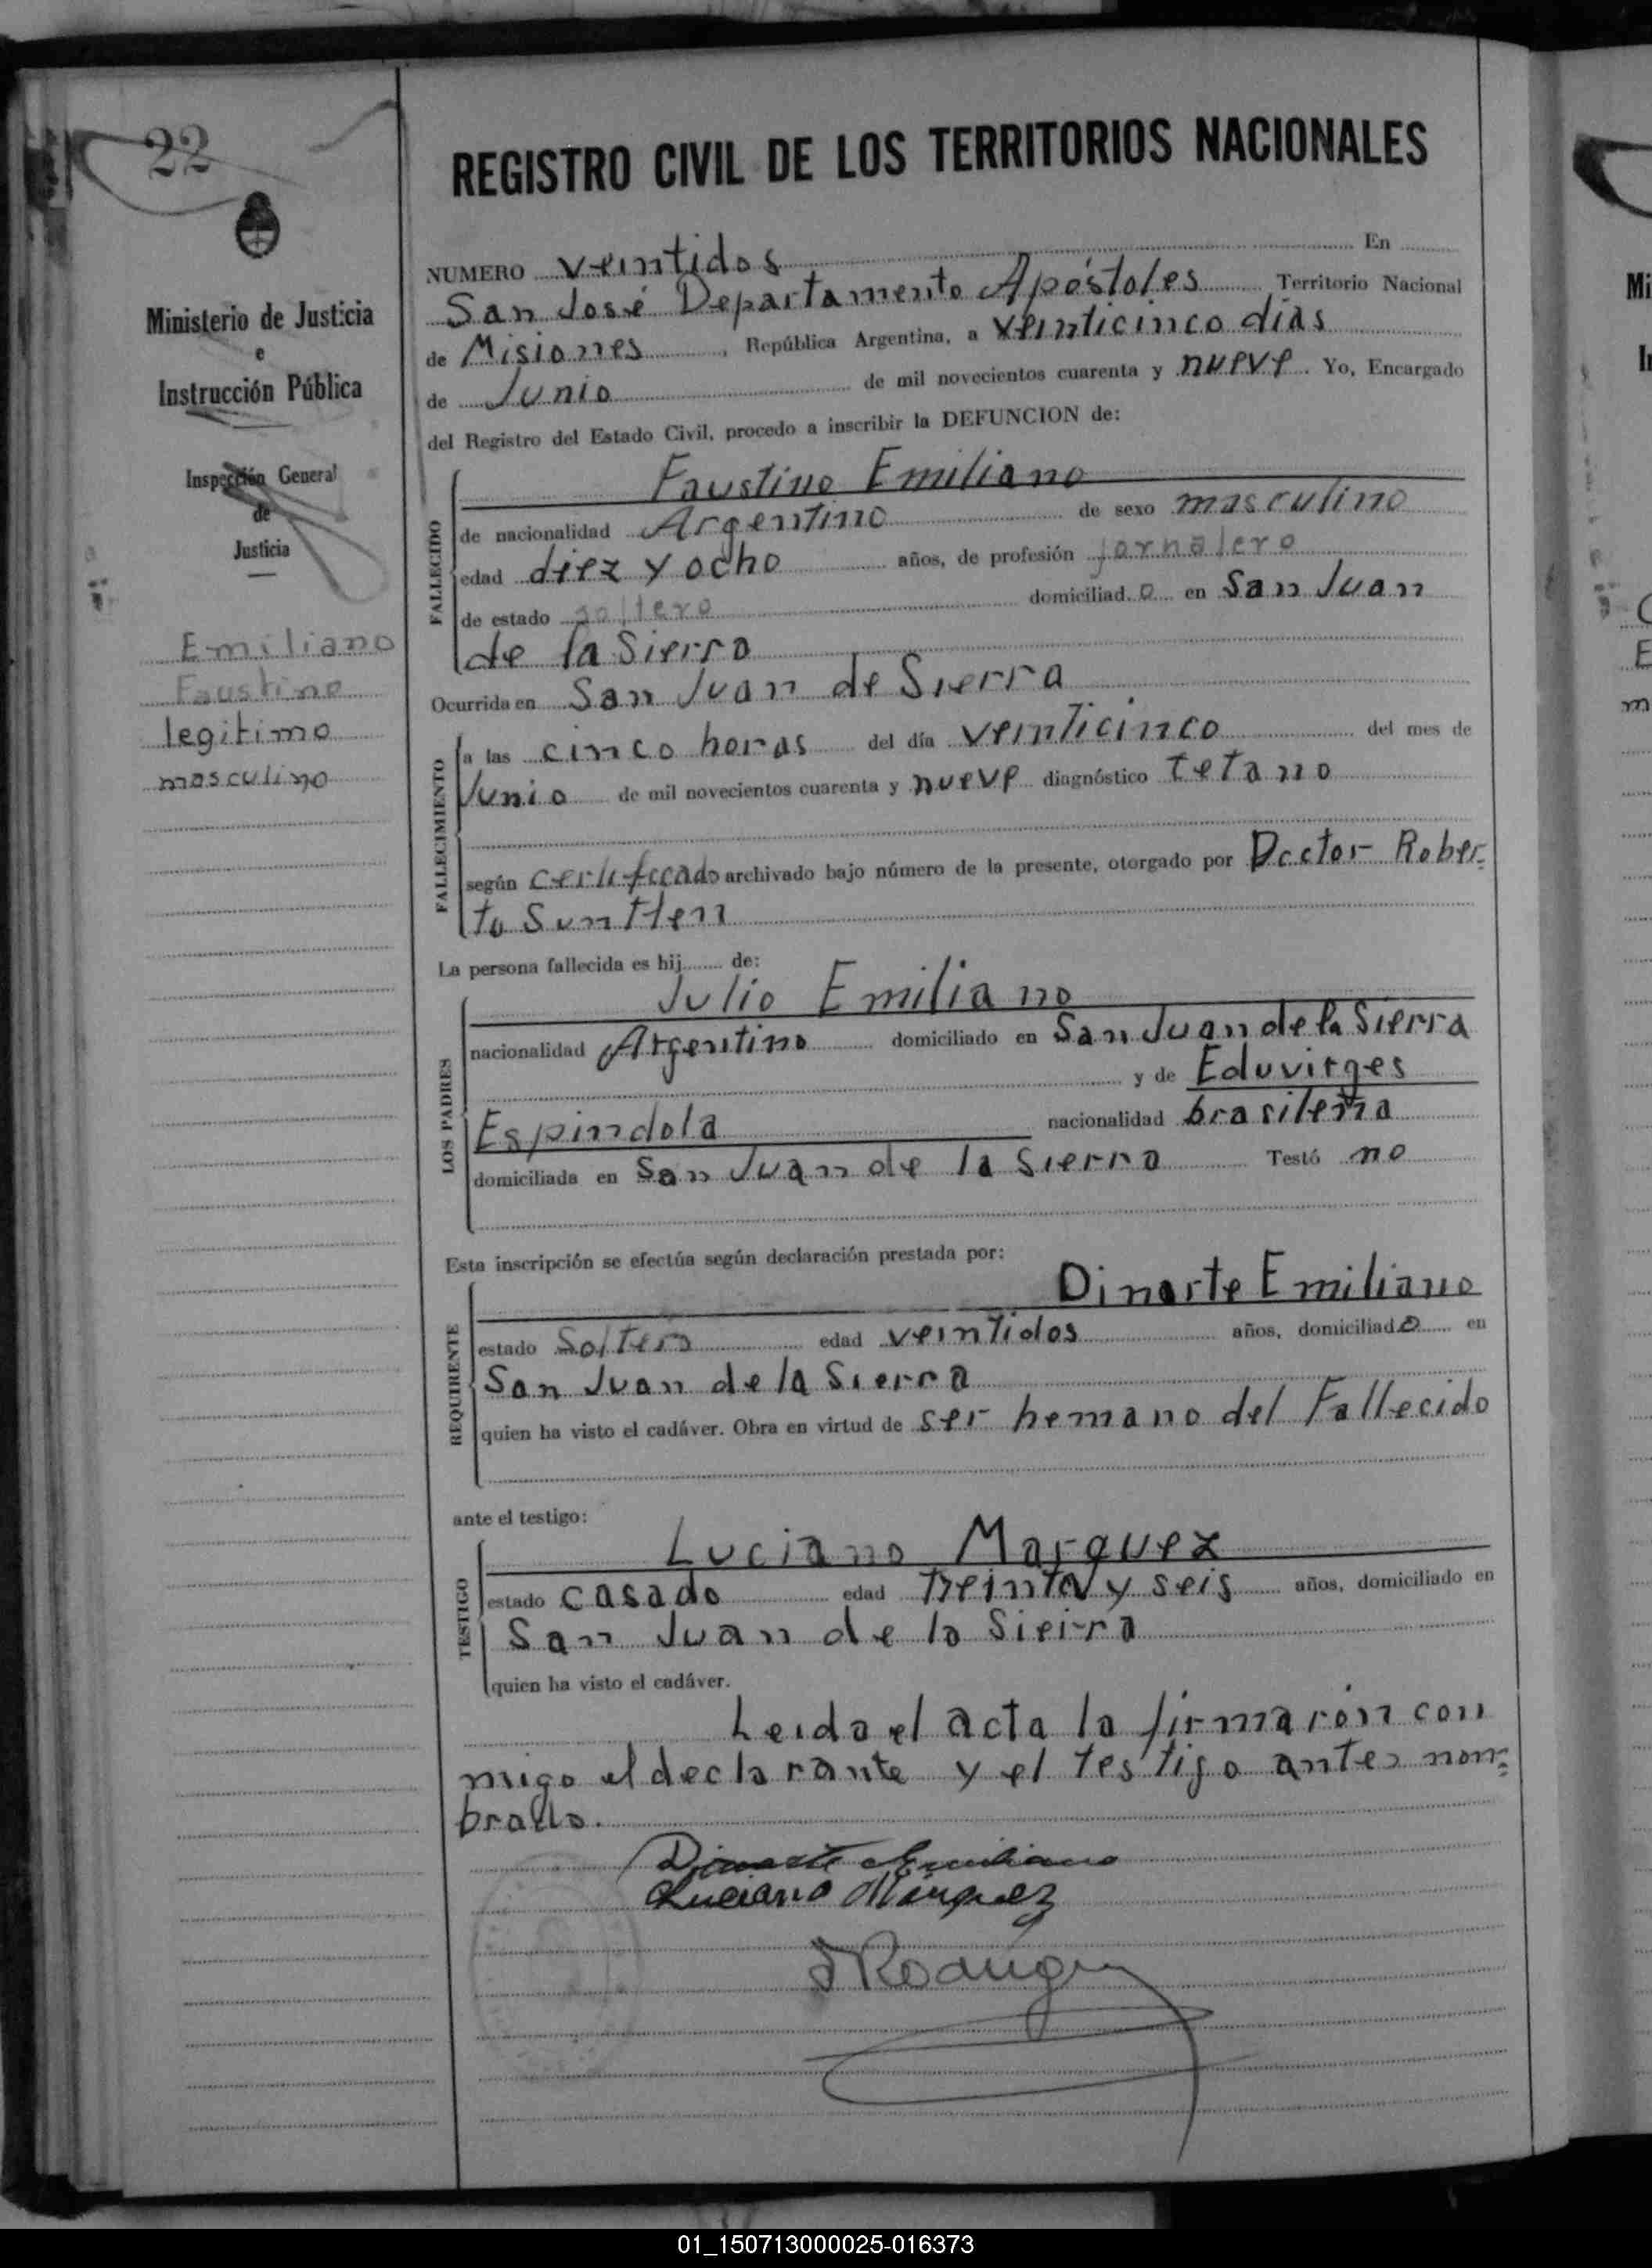 22
Ministerio de Justicia
e
Instrucción Pública
Inspección General
de
Justicia
Emiliano
Faustino
legitimo
masculino
REGISTRO CIVIL DE LOS TERRITORIOS NACIONALES
NUMERO veintidos En
San José Departamento Apóstoles Territorio Nacional
de Misiones, República Argentina, a veinticinco dias
de Junio de mil novecientos cuarenta y nueve. Yo, Encargado
del Registro del Estado Civil, procedo a inscribir la DEFUNCION de:
FALLECIDO
Faustino Emiliano
de nacionalidad Argentino de sexo masculino
edad diez y ocho años, de profesión jornalero
de estado soltero domiciliad o en San Juan
de la Sierra
Ocurrida en San Juan de Sierra
FALLECIMIENTO
a las cinco horas del día veinticinco del mes de
Junio de mil novecientos cuarenta y nueve diagnóstico tetano
según certificado archivado bajo número de la presente, otorgado por Doctor Rober-
to
La persona fallecida es hij de:
LOS PADRES
Julio Emiliano
nacionalidad Argentino domiciliado en San Juan de la Sierra
y de Eduvirges
Espindola nacionalidad brasileña
domiciliada en San Juan de la Sierra Testó no
Esta inscripción se efectúa según declaración prestada por:
REQUIRENTE
Dinarte Emiliano
estado Soltero edad veintidos años, domiciliado en
San Juan de la Sierra
quien ha visto el cadáver. Obra en virtud de ser hemano del Fallecido
ante el testigo:
TESTIGO
Luciano Marquez
estado casado edad treinta y seis años, domiciliado en
San Juan de la Sierra
quien ha visto el cadáver.
Leida el acta la firmarón con
migo el declarante y el testigo antes nom=
brado.
Dinarte Emiliano
Luciano Márquez
01_150713000025-016373